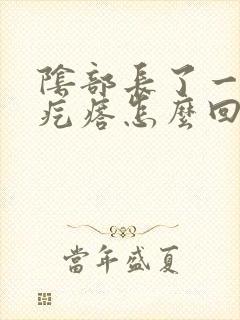 陰部長了一
疙瘩怎麼回
當年盛夏